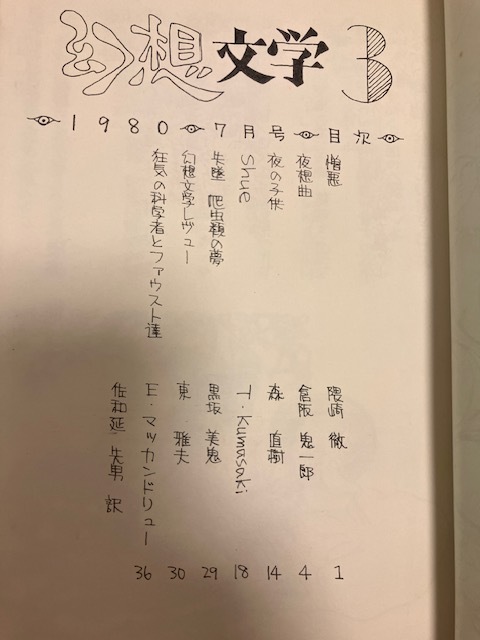 幻想文学 3
1980 7月号 目次
憎悪 隈崎 徹 1
夜想曲 倉阪 鬼一郎 4
夜の子供 森 直樹 14
Shue T・Kumasaki 18
失墜 爬虫類の夢 黒坂 美鬼 29
幻想文学レヴュー 東 雅夫 30
狂気の科学者とファウスト達 E・マッカンドリュー 36
佐和延 失男 訳